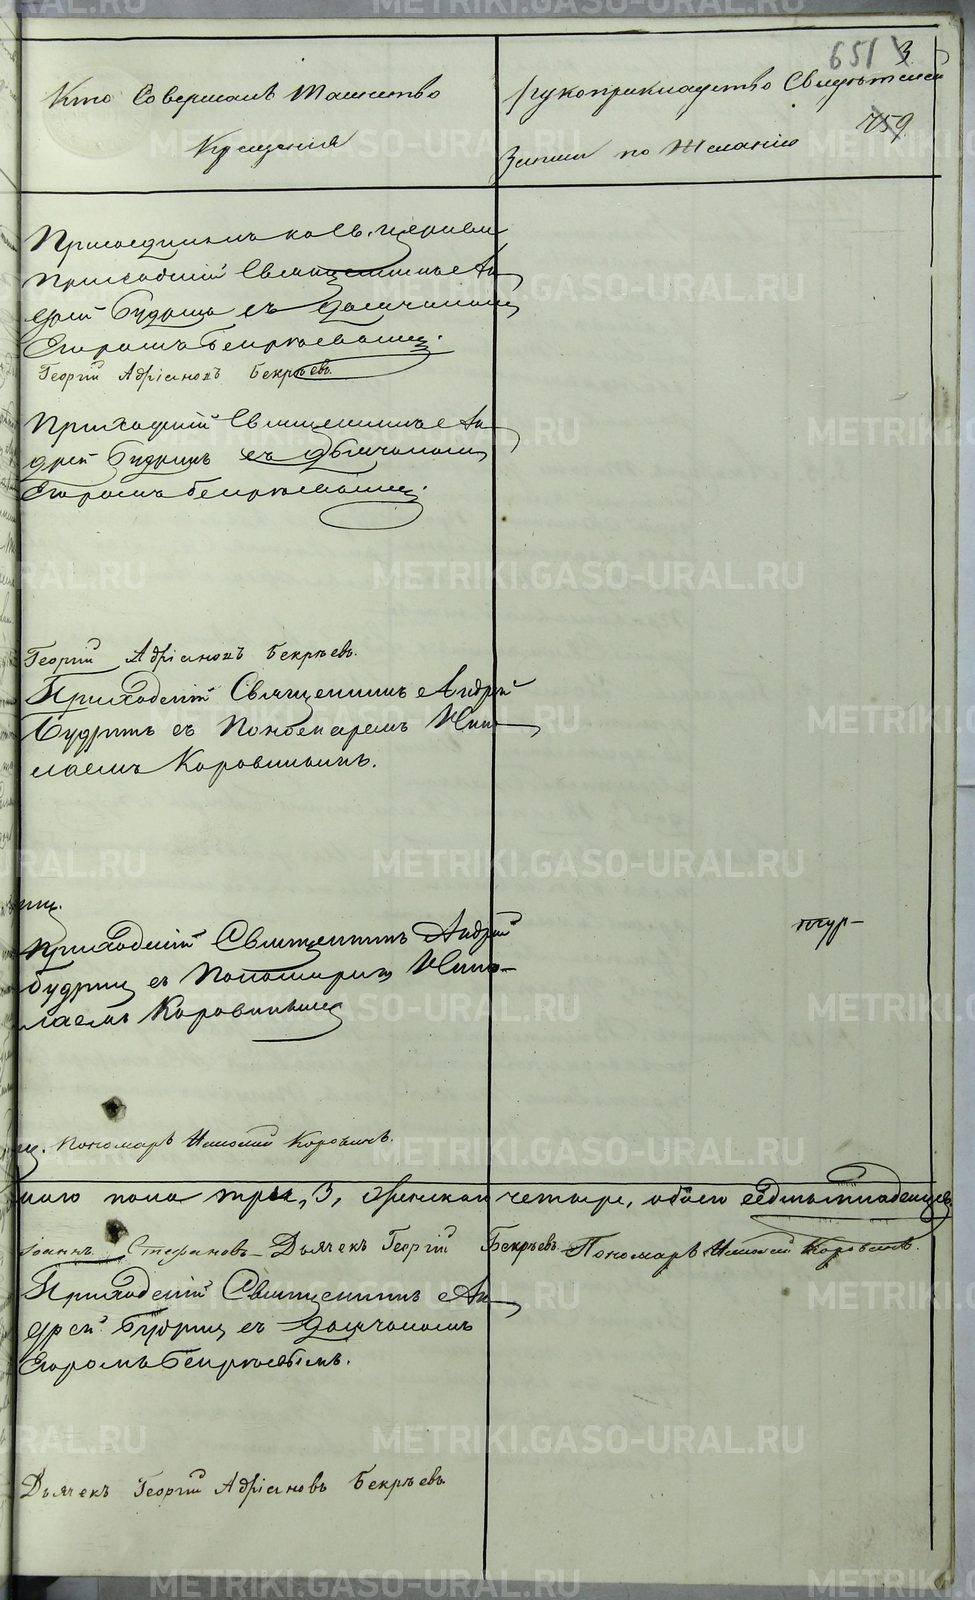 651 3
Кто Совершалъ Таинство
Крещенія
Рукоприкладство Свидѣтелей
759
Записи по Желанію
Присоединенъ къ Св. церкви
Приходскій Священникъ Ан
дрей Будринъ съ Дьячкомъ
Егоромъ Бекрѣевымъ.
Георгій Адріановъ Бекрѣевъ.
Приходскій Священникъ Ан
дрей Будринъ съ Дьячкомъ
Егоромъ Бекрѣевымъ.
Георгій Адріановъ Бекрѣевъ.
Приходскій Священникъ Андрей
Будринъ съ Пономаремъ Нико
лаемъ Коровинымъ.
Приходскій Священникъ Андрей
Будринъ съ Пономаремъ Нико-
лаемъ Коровинымъ
Пономарь Николай Коровинъ.
пола три, 3, женска четыре, обоего седмь младенцевъ
Іоаннъ Стефановъ Дьячекъ Георгій Бекрѣевъ Пономарь Николай Коровинъ.
Приходскій Священникъ Ан
дрей Будринъ съ Дьячкомъ
Егоромъ Бекрѣевымъ.
Дьячекъ Георгій Адріановъ Бекрѣевъ
METRIKI.GASO-URAL.RU